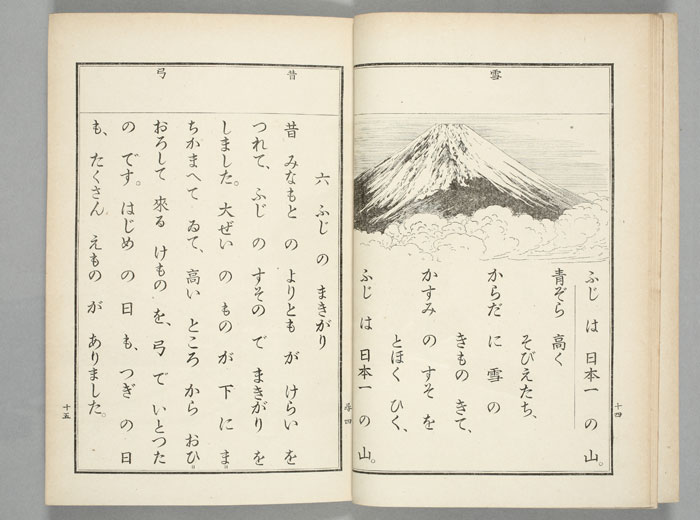 雪
ふじ は 日本一 の 山。
青ぞら 高く
そびえたち、
からだ に 雪 の
きもの きて、
かすみ の すそ を
とほく ひく、
ふじ は 日本一 の 山。
十四
昔
弓
六 ふじ の まきがり
昔 みなもと の よりとも が けらい を
つれて、ふじ の すその で まきがり を
しました。大ぜい の もの が 下 に ま
ちかまへて ゐて、高い ところ から おひ
おろして 來る けもの を、弓 で いとつた
の です。はじめ の 日 も、つぎ の 日
も、たくさん えもの が ありました。
尋四
十五